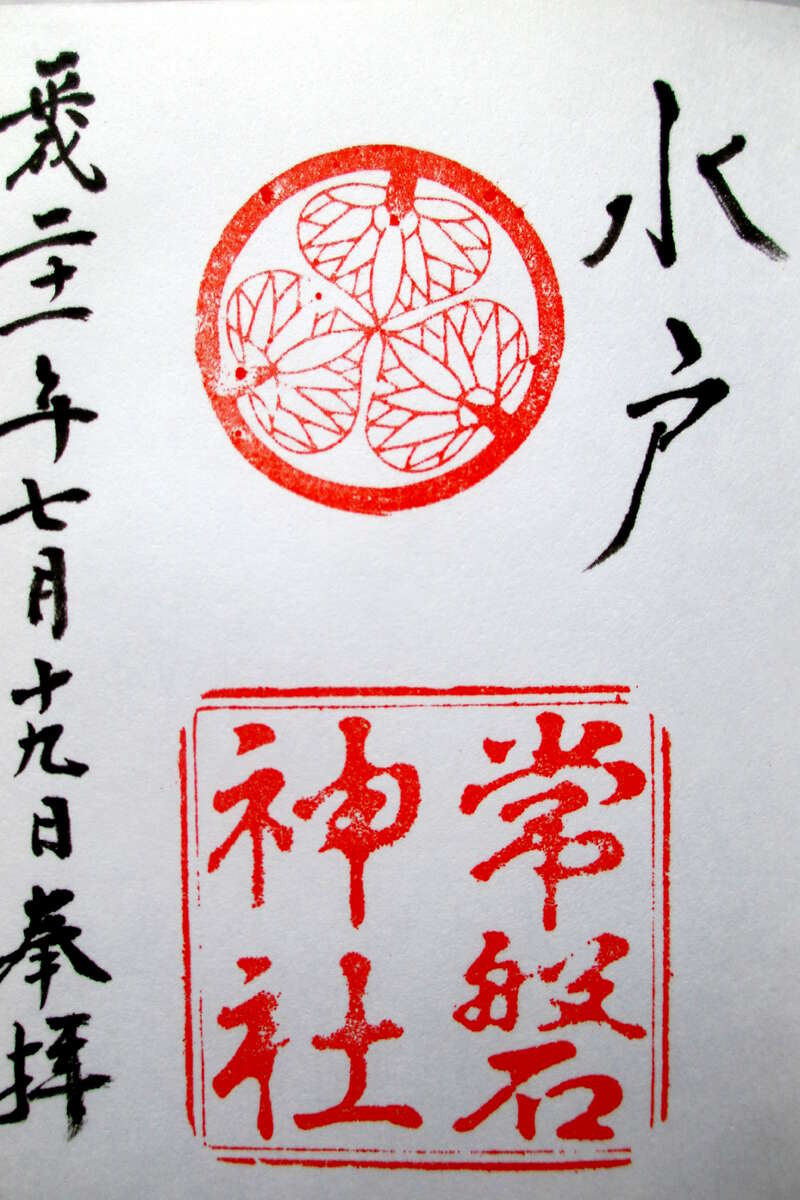 水戸
常磐
神社
平成二十一年七月十九日奉拝